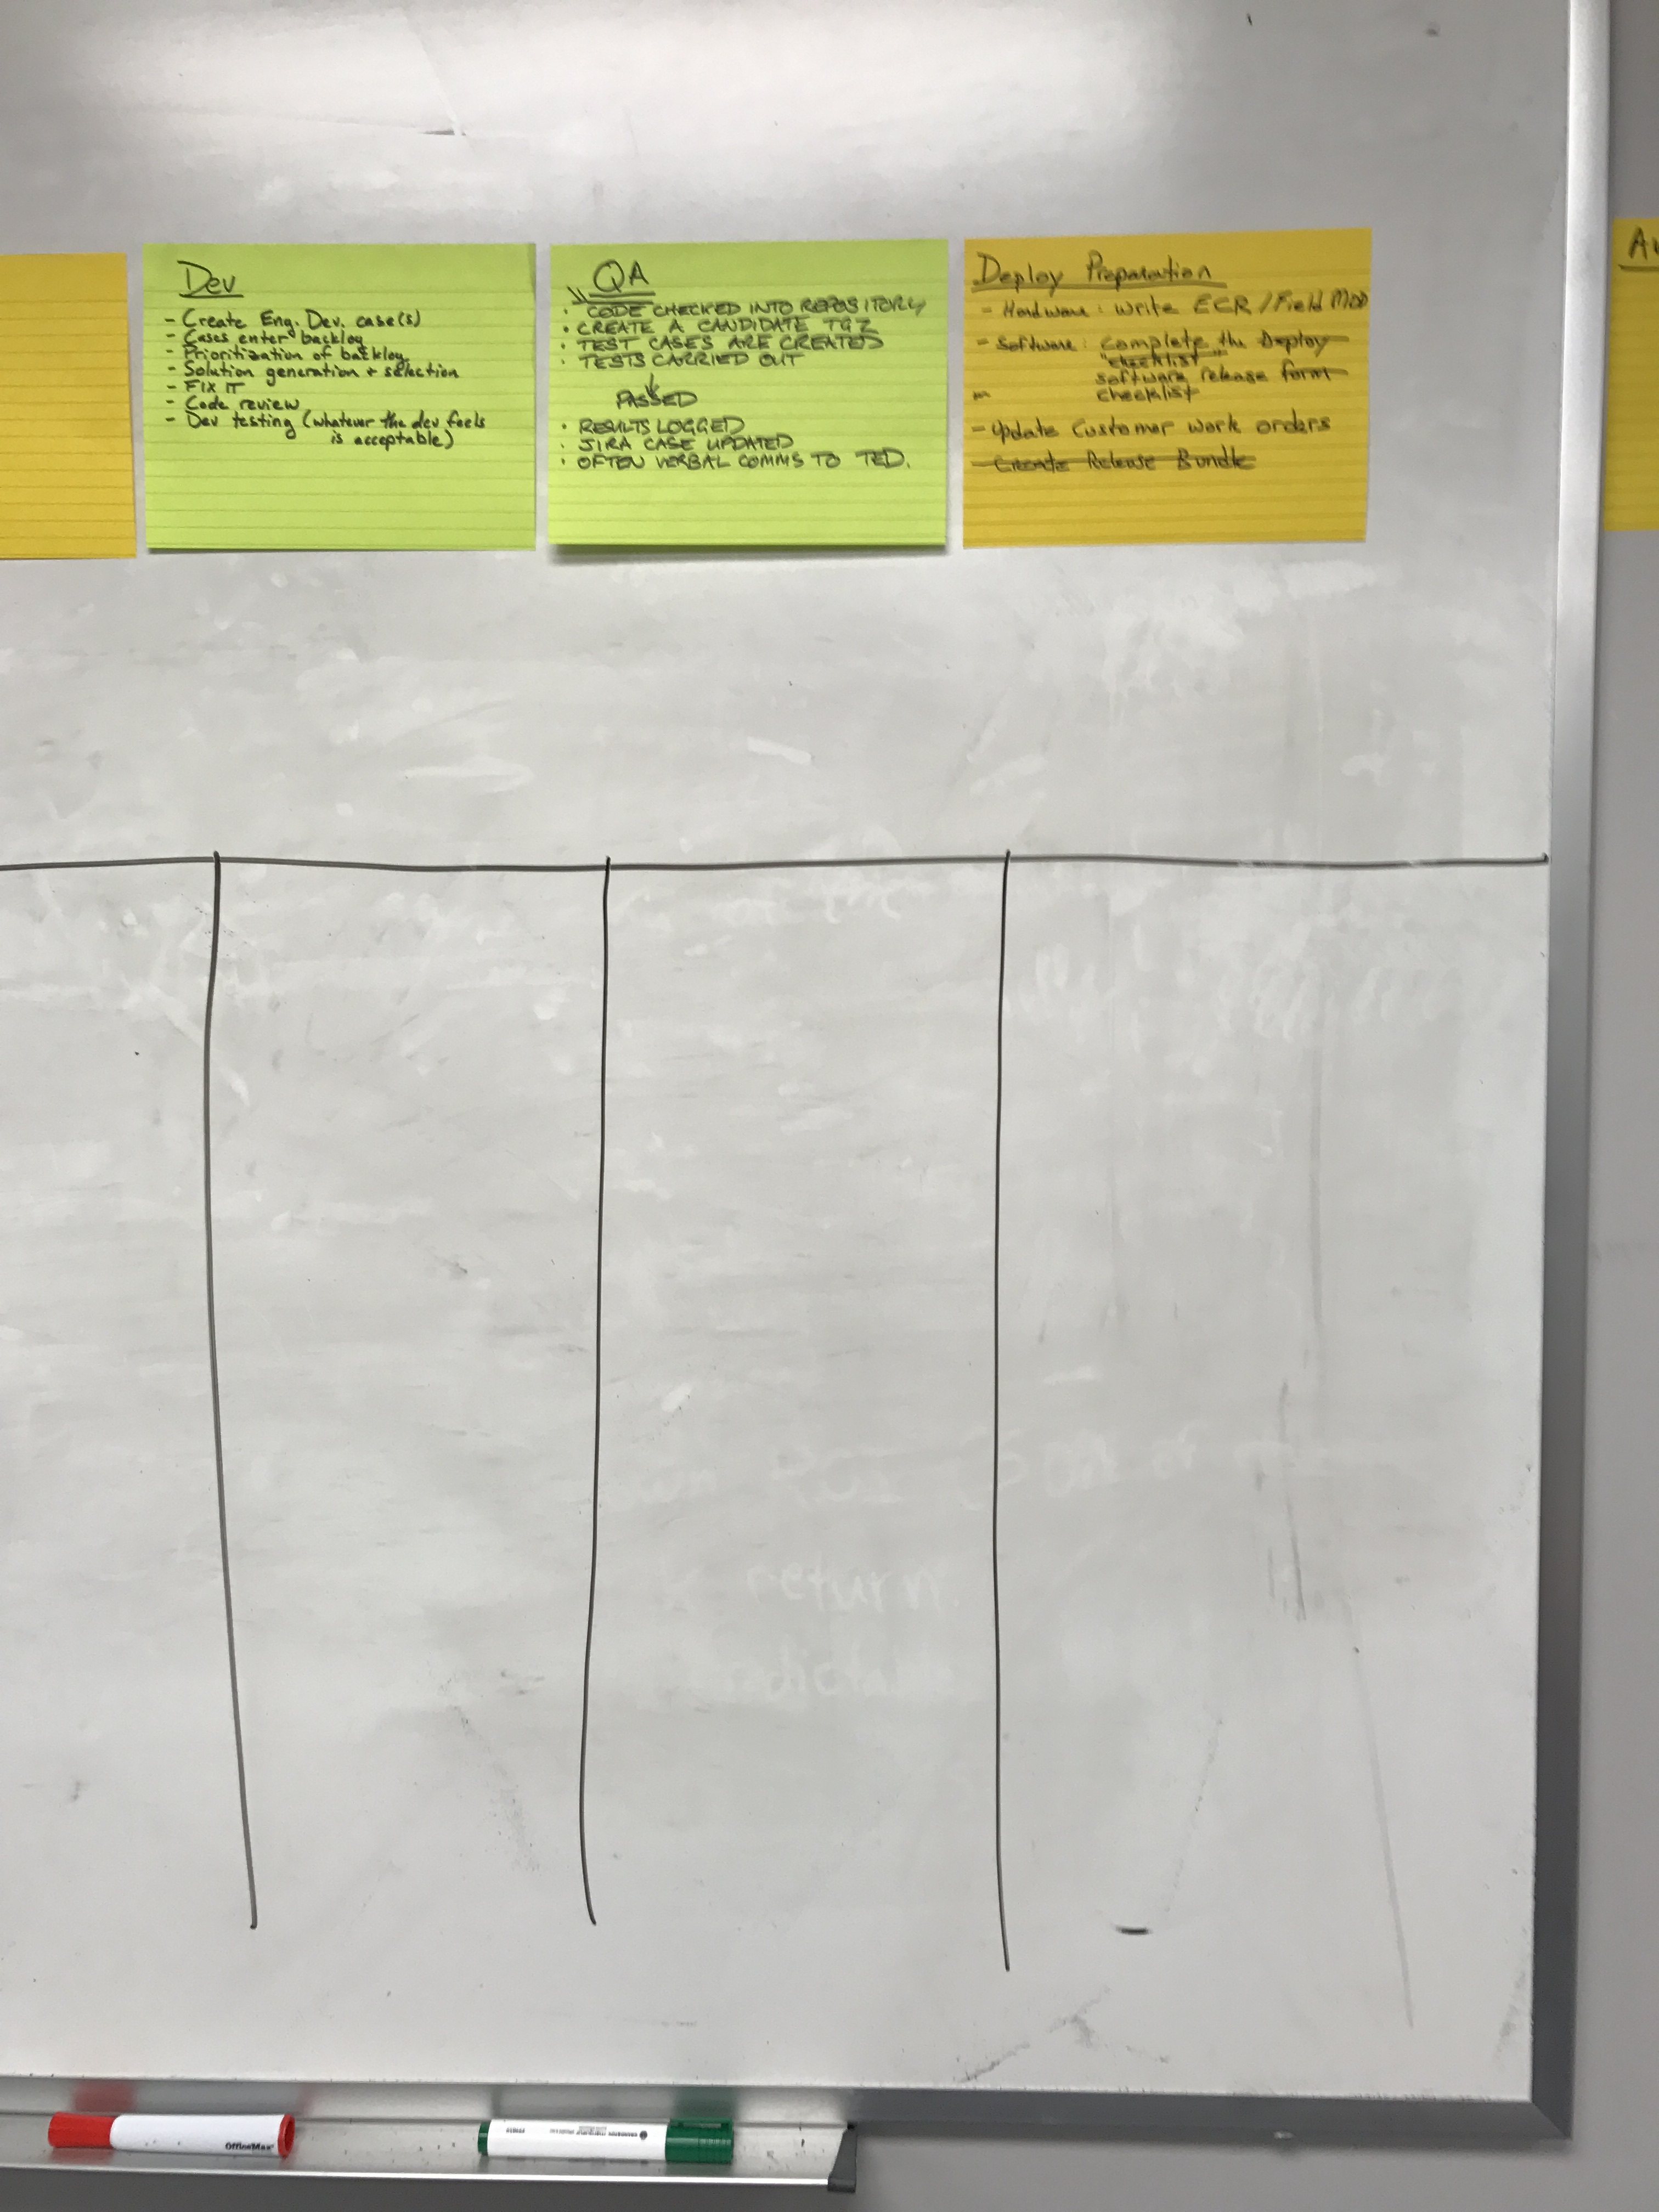 Dev
- Create Eng. Dev. case(s)
- Cases enter backlog
- Prioritization of backlog
- Solution generation + selection
- FIX IT
- Code review
- Dev testing (whatever the dev feels
is acceptable)
QA
• CODE CHECKED INTO REPOSITORY
• CREATE A CANDIDATE TGZ
• TEST CASES ARE CREATED
• TESTS CARRIED OUT
PASSED
• RESULTS LOGGED
• JIRA CASE UPDATED
• OFTEN VERBAL COMMS TO TED.
Deploy Preparation
- Hardware: write ECR/Field MOD
- Software: complete the Deploy
"checklist"
software release form
checklist
- Update Customer work orders
- Create Release Bundle
return
OfficeMax